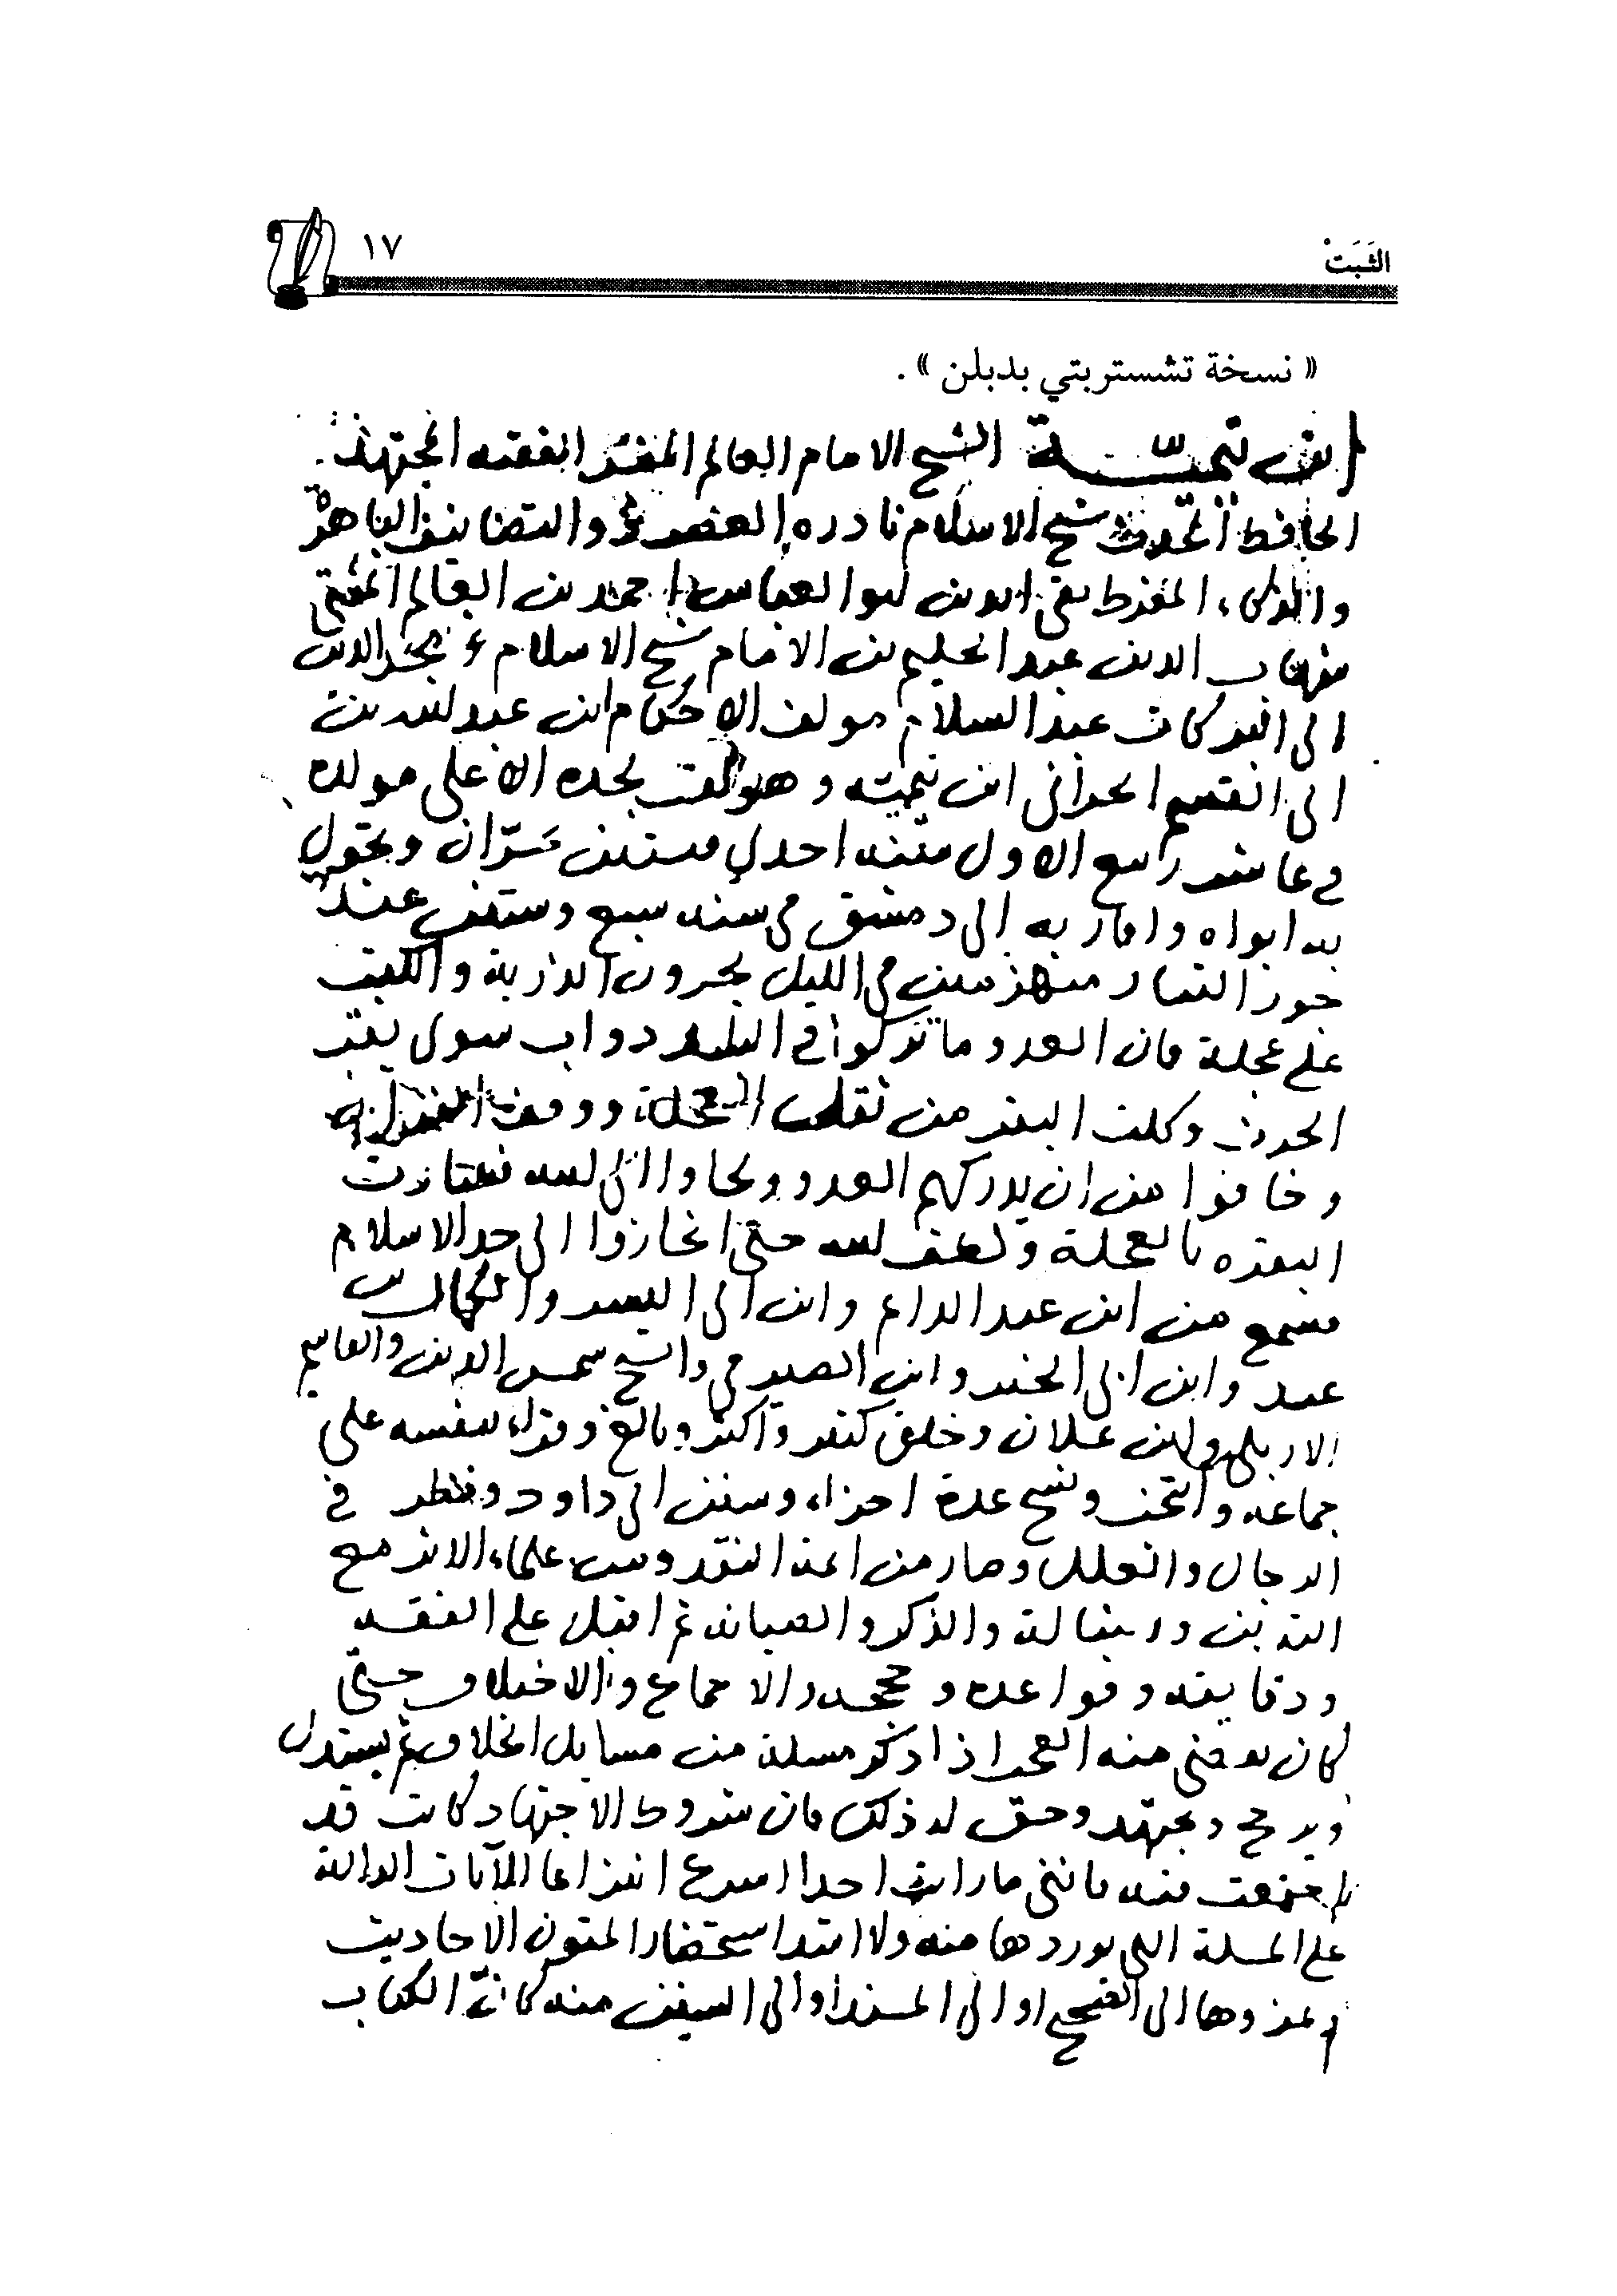 الثَبَتْ
١٧
« نسخة تشستربتي بدبلن » .
ابن تيميّة الشيخ الامام العالم المفسر الفقيه المجتهد
الحافظ المحدث شيخ الاسلام نادره العصر ذو التصانيف الباهرة
والذكاء المفرط تقي الدين ابو العباس احمد بن العالم المفتي
شهاب الدين عبد الحليم بن الامام شيخ الاسلام مجد الدين
ابي البركات عبد السلام مولف الاحكام ابن عبد الله بن
ابي القسم الحراني ابن تيميه وهو لقب لجده الاعلى مولده
في عاشر ربيع الاول سنه احدى وستين بحرّان وتحول
به ابواه واقاربه الى دمشق في سنه سبع وستين عند
جور التتار منهزمين في الليل يجرون الذرية والكتب
على عجلة فان العدو ما تركوا في البلد دواب سوى بقر
الحرث وكلت البقر من ثقل العجلة ووقف
وخافوا من ان يدركهم العدو ولجاوا الى الله فسارت
البقره بالعجلة ولطف الله حتى انحازوا الى حد الاسلام
فسمع من ابن عبد الدايم وابن ابي اليسر والكمال بن
عبد وابن ابي الخير وابن الصيرفي والشيخ شمس الدين والقاسم
الاربلي وابن علان وخلق كثير واكثر وبالغ وقراء بنفسه على
جماعه وانتخب ونسخ عدة اجزاء وسنن ابي داود ونظر في
الرجال والعلل وصار من ائمة النقد ومن علماء الاثر مع
التدين والنبالة والذكر والصيانه ثم اقبل على الفقه
ودقايقه وقواعده وحججه والاجماع والاختلاف حتى
كان يقضى منه العجب اذا ذكر مسلة من مسايل الخلاف ثم يستدل
ويرجح ويجتهد وحق له ذلك فان شروط الاجتهاد كانت قد
اجتمعت فيه فانني ما رايت احدا اسرع انتزاعا للآيات الدالة
على المسلة التي يوردها منه ولا اشد استحضارا لمتون الاحاديث
وعزوها الى الصحيح او الى المسند او الى السنن منه كانّ الكتاب